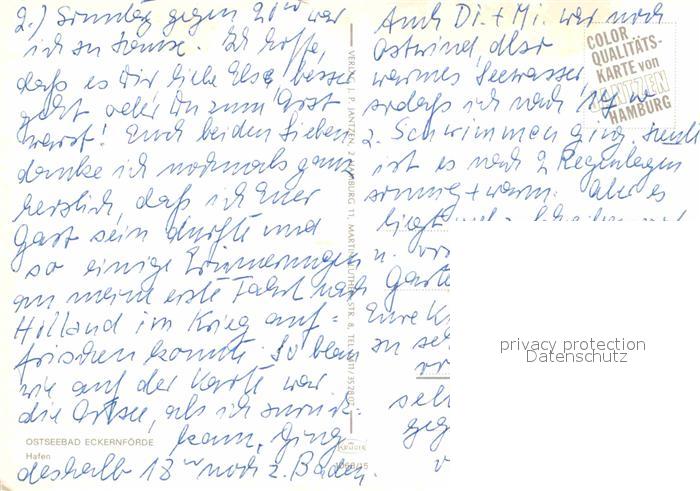 2.) Sonntag gegen 20 Uhr war
ich zu Hause. Ich hoffe,
daß es Dir, liebe Else, besser
geht oder Du zum Arzt
warst! Euch beiden Lieben
danke ich nochmals ganz
herzlich, daß ich Euer
Gast sein durfte und
so einige Erinnerungen
an meine erste Fahrt nach
Holland im Krieg auf-
frischen konnte. So blau
wie auf der Karte war
die Ostsee, als ich zurück-
kam, ging
deshalb 18 Uhr noch z. Baden.
OSTSEEBAD ECKERNFÖRDE
Hafen
VERLAG J. P. JANTZEN, 2 HAMBURG 11, MARTIN-LUTHER-STR. 8, TEL.
KRÜGER
Auch Di. + Mi. war noch
Ostwind, also
warmes Seewasser,
sodaß ich noch
z. Schwimmen ging.
ist es nach 2 Regentagen
sonnig + warm. Aber es
liegt
u.
Garte
Eure K
zu se
sel
geg
COLOR
QUALITÄTS-
KARTE VON
JANTZEN
HAMBURG
privacy protection
Datenschutz